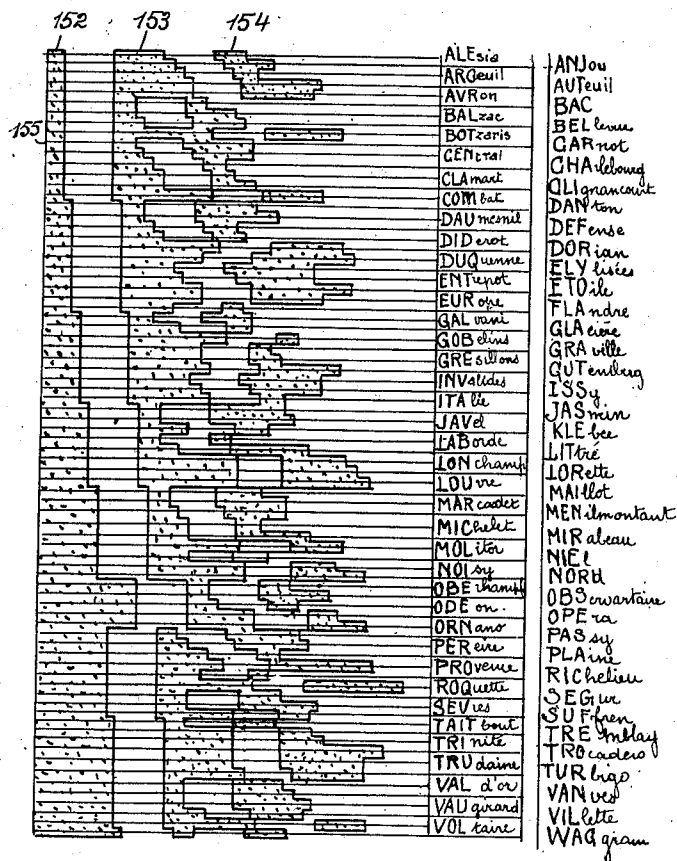 152 153 154
155
ALEsia
ARGeuil
AVRon
BALzac
BOTzaris
CENtral
CLAmart
COMbat
DAUmesnil
DIDerot
DUQuenne
ENTrepot
EURope
GALvani
GOBelins
GREsillons
INValides
ITAlie
JAVel
LABorde
LONchamp
LOUvre
MARcadet
MIChelet
MOLitor
NOIsy
OBErkampf
ODEon.
ORNano
PEReire
PROvence
ROQuette
SEVres
TAITbout
TRInité
TRUdaine
VAL d'or
VAUgirard
VOLtaire
ANJou
AUTeuil
BAC
BELlevue
CARnot
CHArlebourg
CLIgnancourt
DANton
DEFense
DORian
ELYsées
ETOile
FLAndre
GLAcière
GRAville
GUTenberg
ISSy
JASmin
KLEber
LITtré
LORette
MAIllot
MENilmontant
MIRabeau
NIEl
NORd
OBServatoire
OPEra
PASsy
PLAine
RIChelieu
SEGur
SUFfren
TREmblay
TROcadero
TURbigo
VANves
VILlette
WAGgram